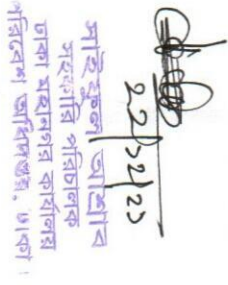 ২২/১২/২১
সাইফুল আশ্রাব
সহকারি পরিচালক
ঢাকা মহানগর কার্যালয়
পরিবেশ অধিদপ্তর, ঢাকা।